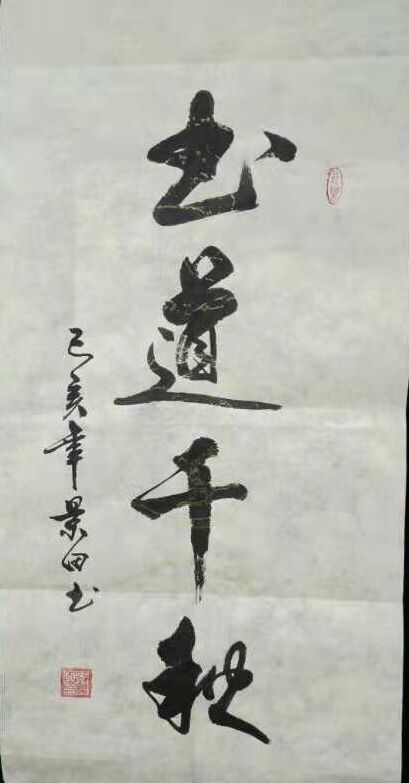 书道千秋
己亥年景田书